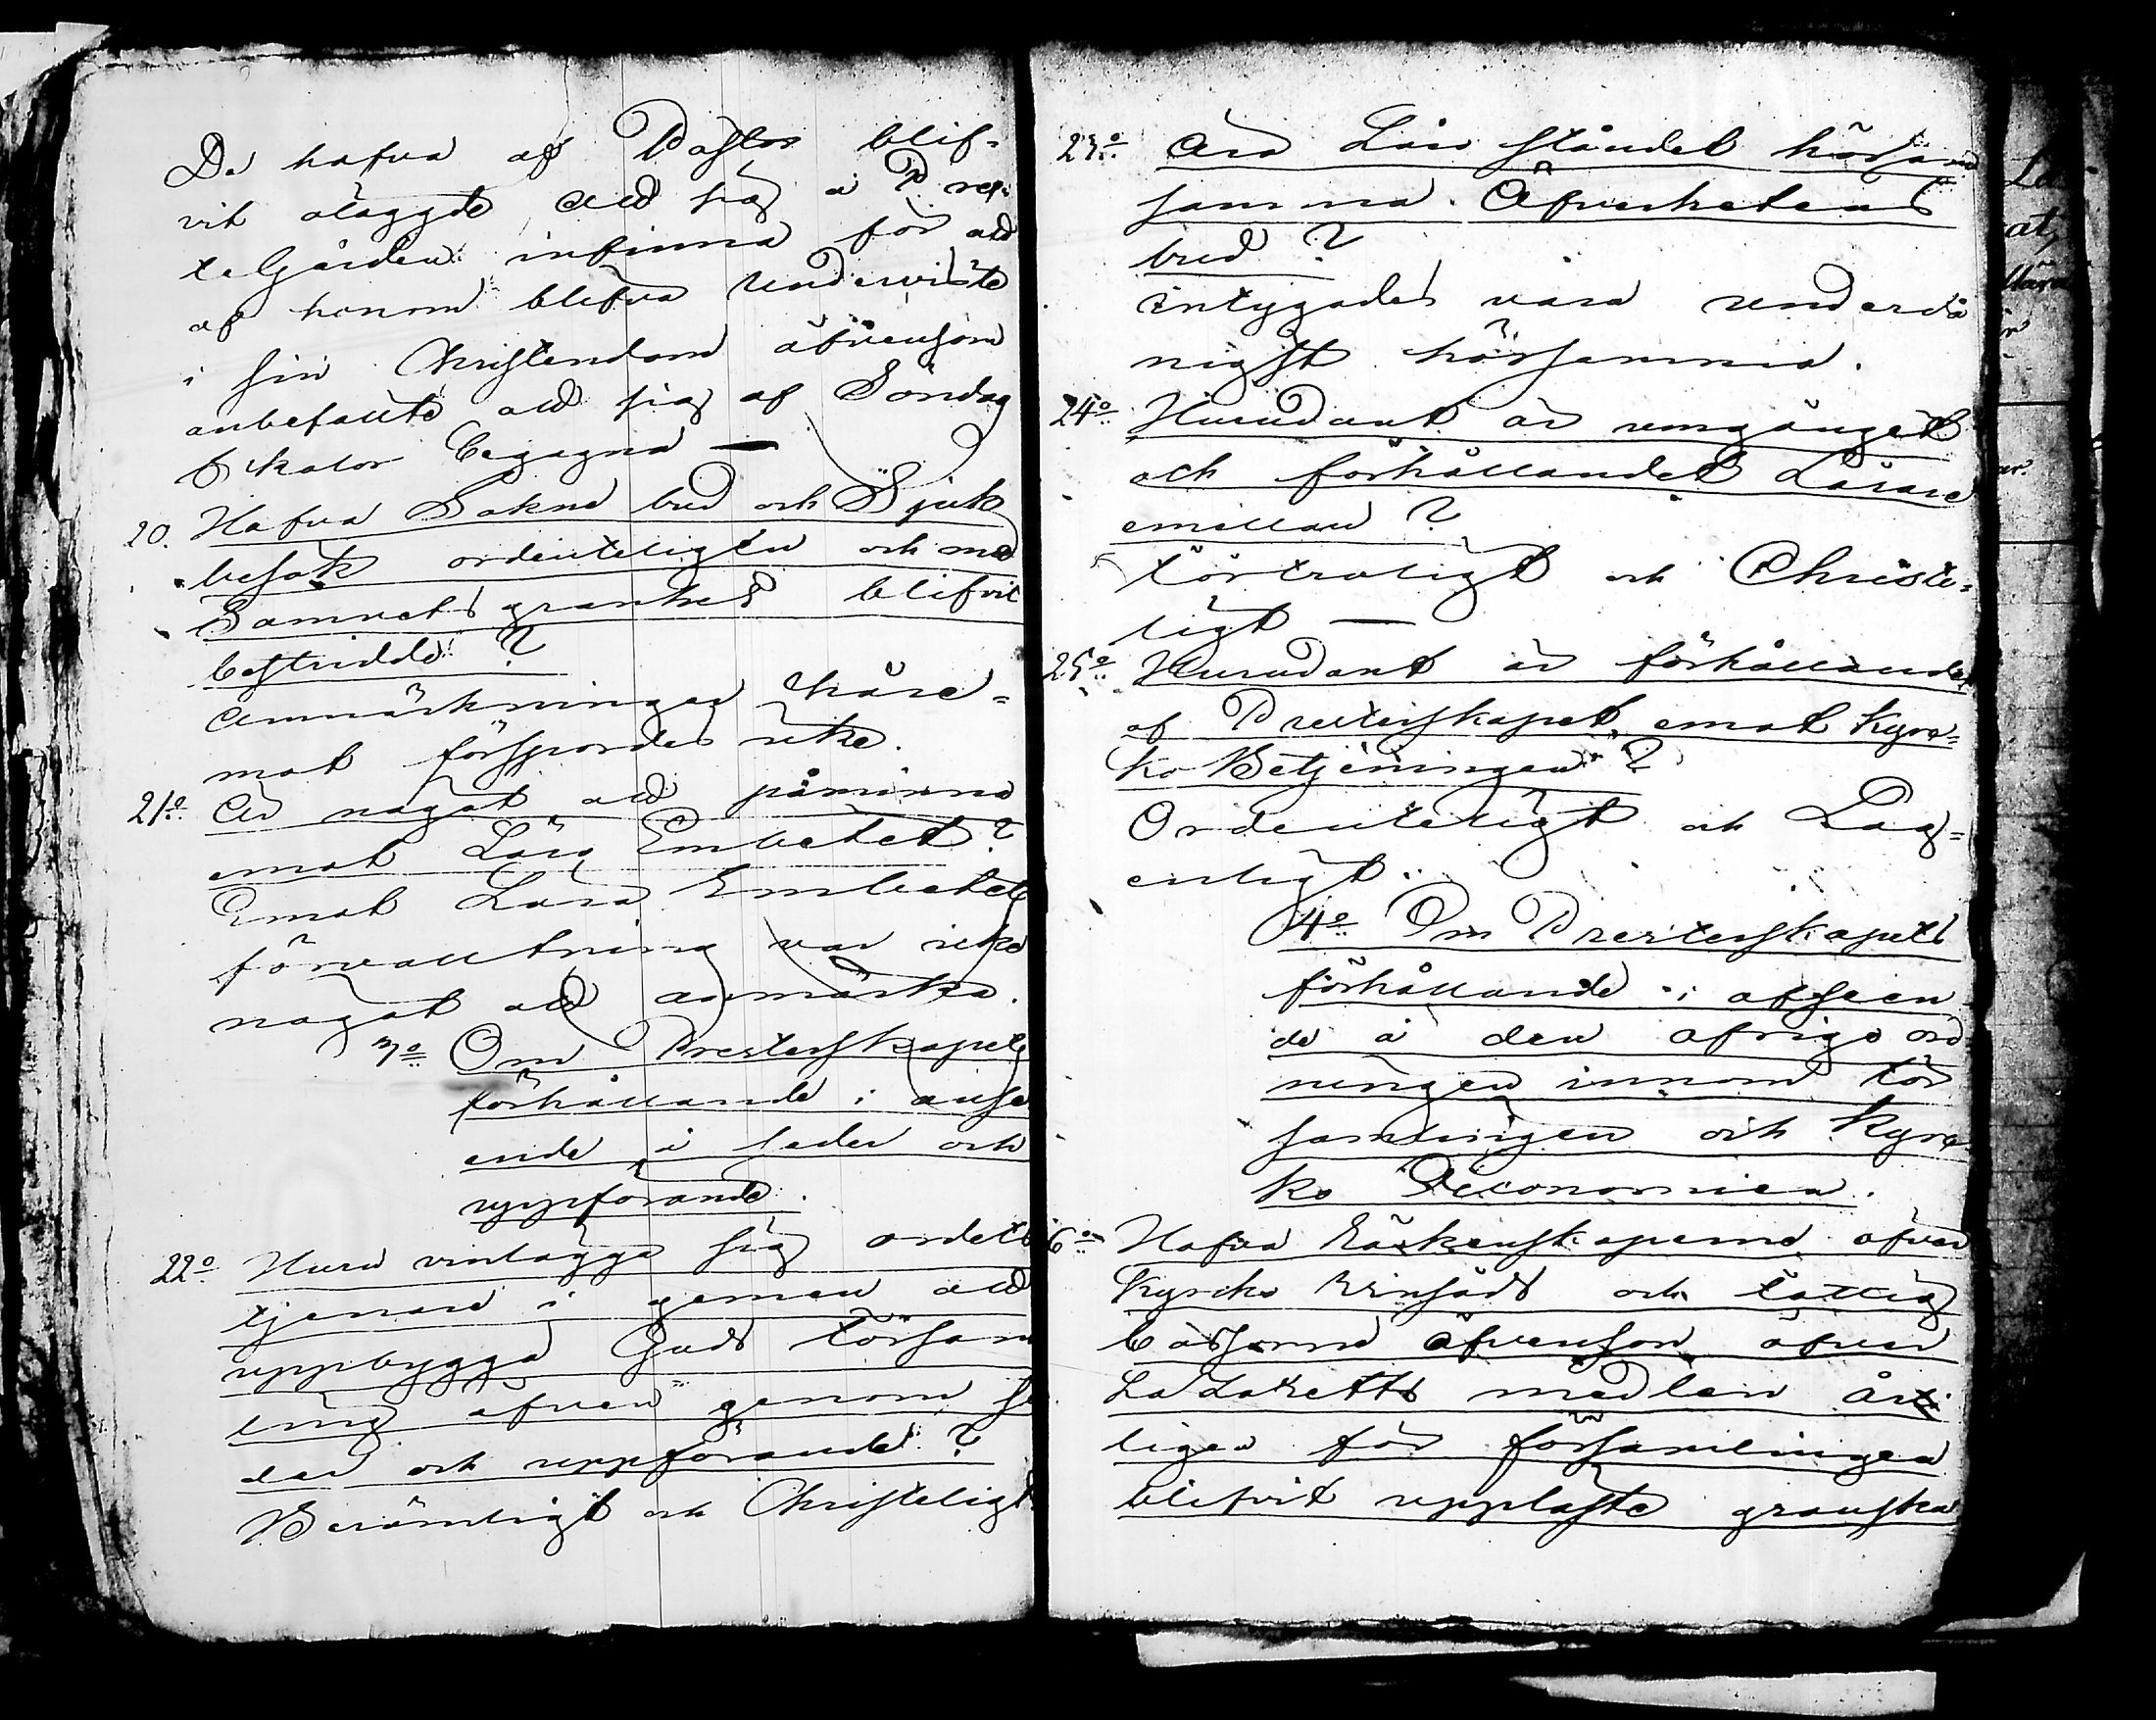 De hafva af Pastor blif=
vit ålaggde att sig å Pres=
telgården infinna för att
af honom blifva underviste
i sin Christendom äfvensom
anbefalte att sig af Söndag
s skolor begagna —
20. Hafva Sokne bud och Sjuk
besök ordenteligen och med
Samvets granhet blifvit
bestridde ?
Anmärkningar häre=
mot försportes icke.
21o Är något att påminna
emot Läro Embetet ?
Emot Läro Embetets
förvaltning var icke
något att anmärka.
3o Om Presterskapets
förhållande i anse
ende å seder och
uppförande.
22o Huru vinlägga sig ordets
tjenare i gemen att
uppbygga Guds försam
ling äfven genom se
der och uppförande ?
Berömligt och Christeligt
23o Äro Läro ståndet hörsam
samma Öfverhetens
bud ?
intygades vara underdå
nigst hörsamma.
24o Hurudant är umgänget
och förhållandet Lärare
emellan ?
förtroligt och Christe=
ligt —
25o Hurudant är förhållandet
af Presterskapet emot Kyr=
ko Betjeningen ?
Ordenteligt och Lag=
enligt.
4o Om Presterskapets
förhållande i afseen
de å den öfriga ord
ningen innom för
samlingen och Kyr
ko Oeconomien.
6o Hafva Räkenskaperne öfver
Kyrcko Vinsäds och fattig
börsarne äfvensom öfver
Lazaretts medlen års
ligen för församlingen
blifvit uppläste granska